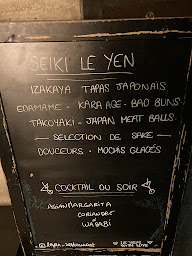 SEIKI LE YEN
IZAKAYA TAPAS JAPONAIS
EDAMAME - KARAAGE - BAO BUNS
TAKOYAKI - JAPAN MEAT BALLS
SELECTION DE SAKE
DOUCEURS - MOCHIS GLACÉS
COCKTAIL DU SOIR
ASIAN MARGARITA
CORIANDRE
WASABI